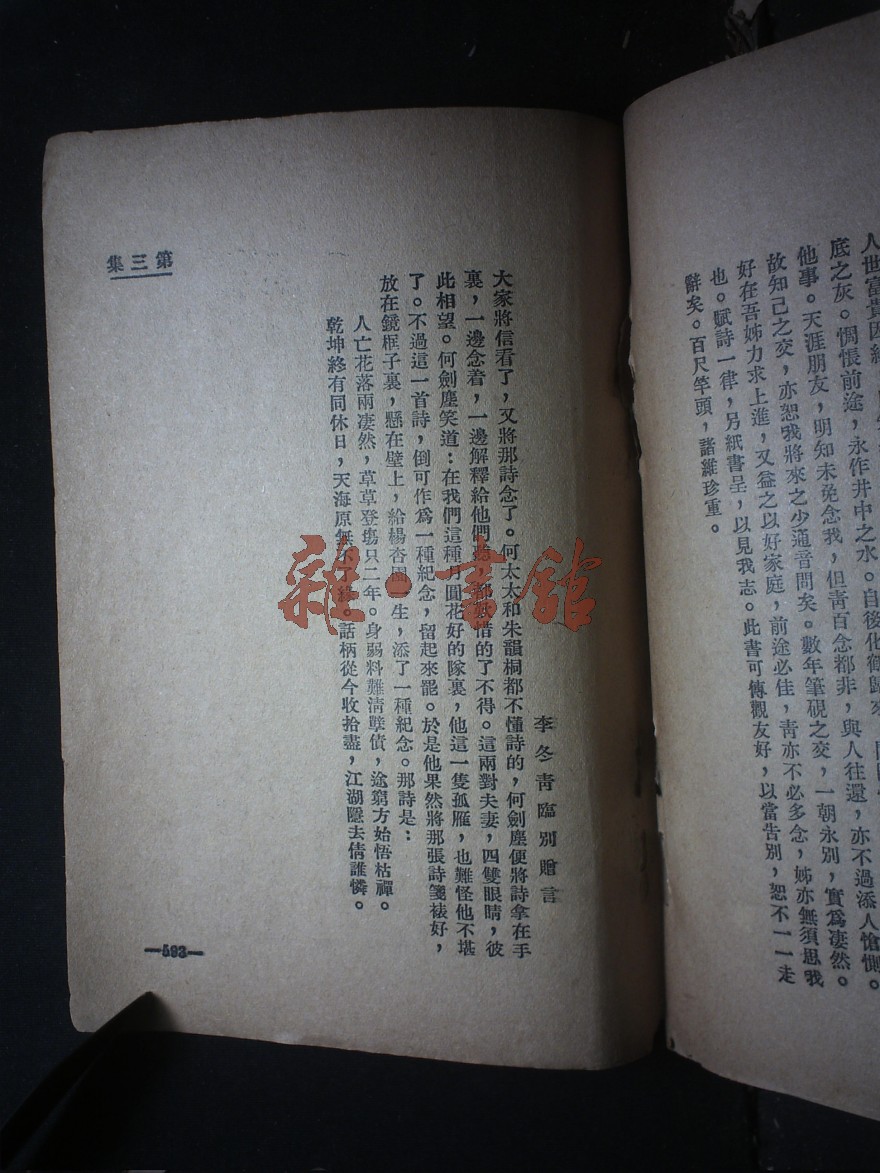 人世富貴因緣
底之灰。惆悵前途，永作井中之水。自後化鶴歸來
他事。天涯朋友，明知未免念我，但靑百念都非，與人往還，亦不過添人愴惻。
故知己之交，亦恕我將來之少通音問矣。數年筆硯之交，一朝永別，實爲凄然。
好在吾姊力求上進，又益之以好家庭，前途必佳，靑亦不必多念，姊亦無須思我
也。賦詩一律，另紙書呈，以見我志。此書可傳觀友好，以當告別，恕不一一走
辭矣。百尺竿頭，諸維珍重。
李冬靑臨別贈言
大家將信看了，又將那詩念了。何太太和朱韻桐都不懂詩的，何劍塵便將詩拿在手
裏，一邊念着，一邊解釋給他們聽，都歎惜的了不得。這兩對夫妻，四雙眼睛，彼
此相望。何劍塵笑道：在我們這種月圓花好的隊裏，他這一隻孤雁，也難怪他不堪
了。不過這一首詩，倒可作爲一種紀念，留起來罷。於是他果然將那張詩箋裱好，
放在鏡框子裏，懸在壁上，給楊杏園一生，添了一種紀念。那詩是：
人亡花落兩凄然，草草登塲只二年。身弱料難淸孽債，途窮方始悟枯禪。
乾坤終有同休日，天海原無不了緣。話柄從今收拾盡，江湖隱去倩誰憐。
第三集
—593—
雜·書館